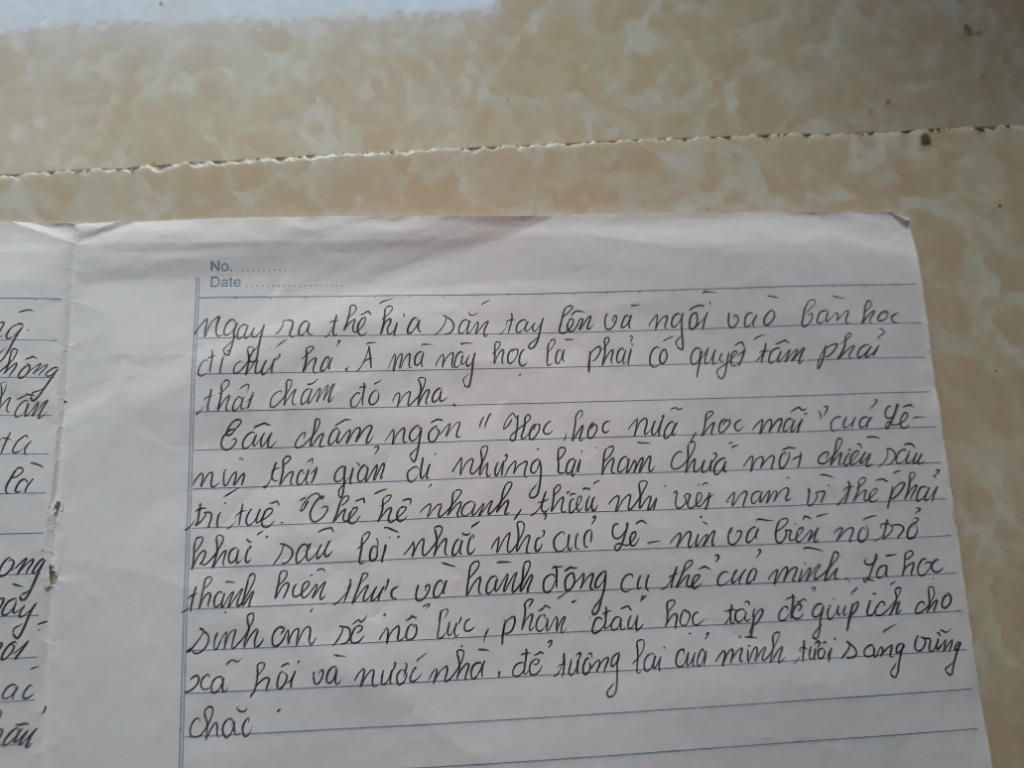 No. .........
Date ...................
ngay ra thế kia sắn tay lên và ngồi vào bàn học
đi chứ hả. À mà này học là phải có quyết tâm phải
thật chăm đó nha.
Câu châm ngôn "Học, học nữa, học mãi" của Lê-
nin thật giản dị nhưng lại hàm chứa một chiều sâu
trí tuệ. Thế hệ nhanh, thiếu nhi việt nam vì thế phải
khắc sâu lời nhắc nhở của Lê-nin và biến nó trở
thành hiện thực và hành động cụ thể của mình. Là học
sinh em sẽ nỗ lực, phấn đấu học tập để giúp ích cho
xã hội và nước nhà, để tương lai của mình tười sáng vững
chắc.
ng
không
hân
ta
là
ong
này
ac